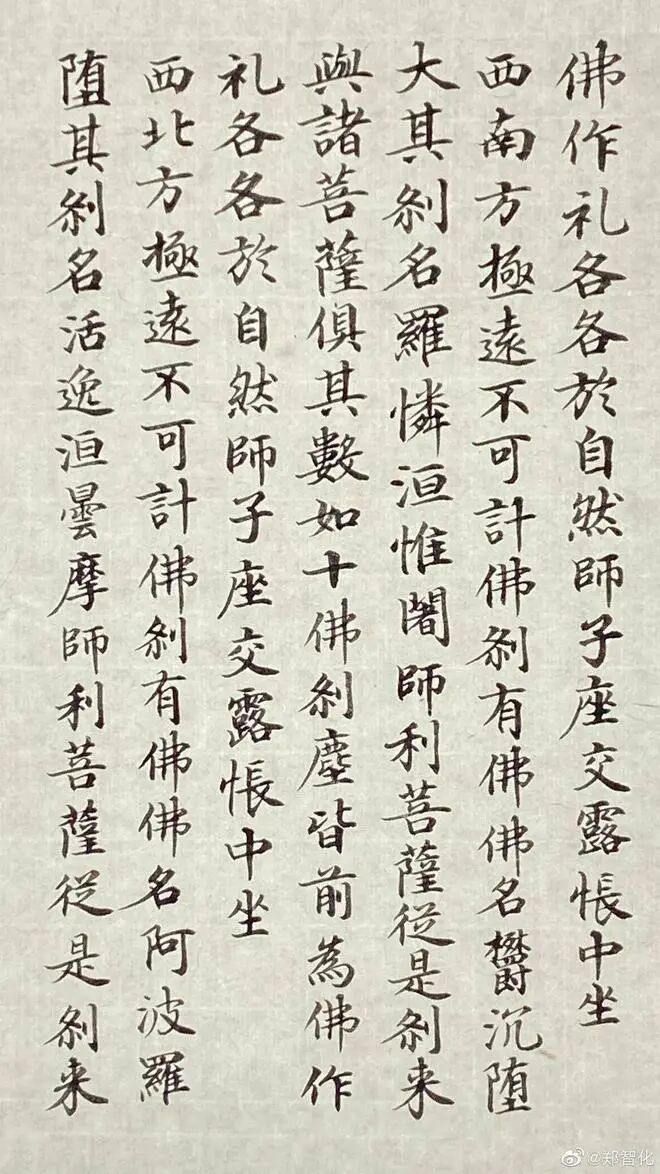 佛作礼各各於自然師子座交露帳中坐
西南方極遠不可計佛刹有佛佛名欝沉堕
大其刹名羅憐洹惟闍師利菩薩從是刹来
與諸菩薩俱其數如十佛刹塵皆前為佛作
礼各各於自然師子座交露悵中坐
西北方極遠不可計佛刹有佛佛名阿波羅
堕其刹名活逸洹曇摩師利菩薩從是刹来
@郑智化